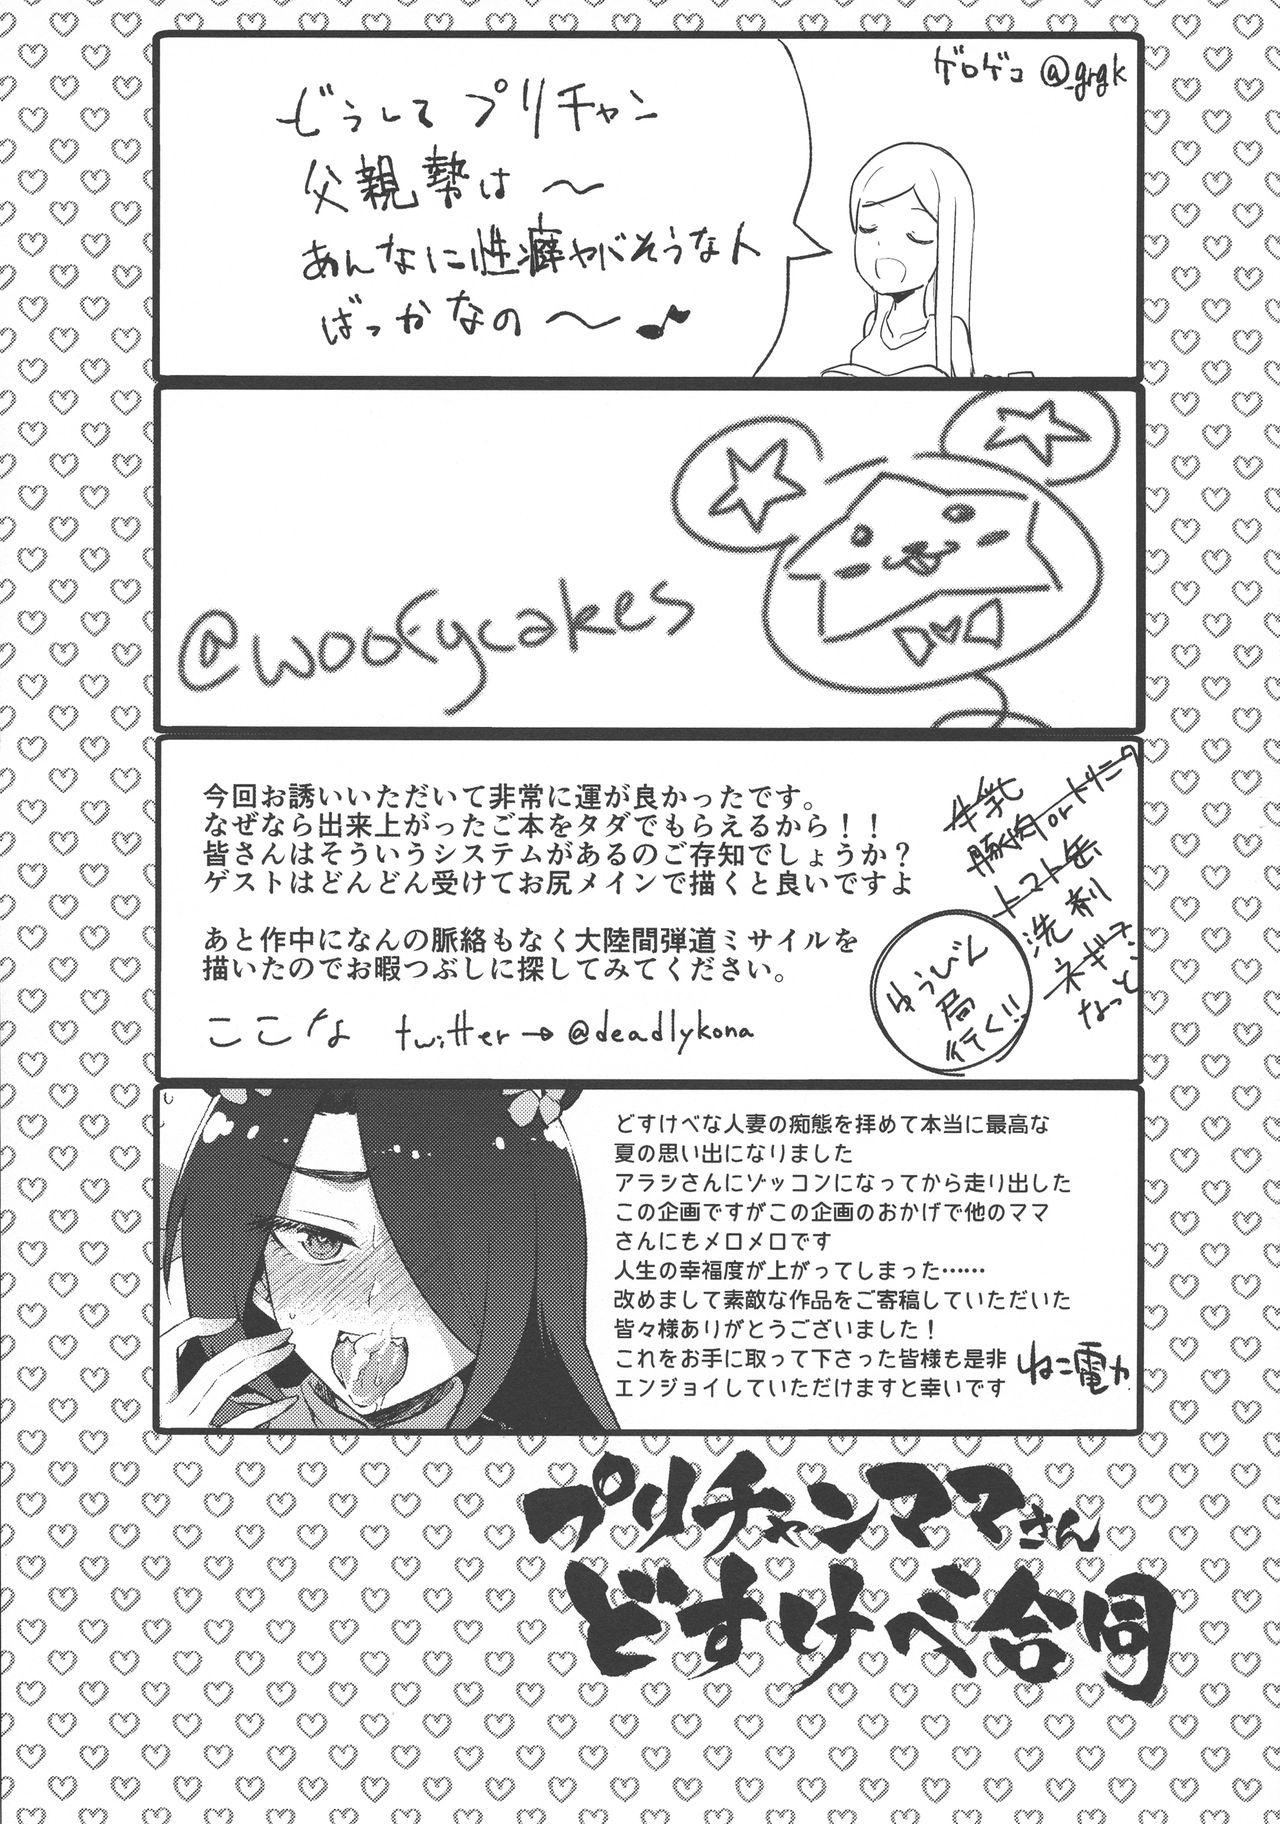 ゲロゲコ @_grgk
どうして プリチャン
父親勢は 〜
あんなに性癖ヤバそうな人
ばっかなの 〜♪
@woofycakes
今回お誘いいただいて非常に運が良かったです。
なぜなら出来上がったご本をタダでもらえるから！！
皆さんはそういうシステムがあるのご存知でしょうか？
ゲストはどんどん受けてお尻メインで描くと良いですよ
あと作中になんの脈絡もなく大陸間弾道ミサイルを
描いたのでお暇つぶしに探してみてください。
ここな twitter→@deadlykona
牛乳
豚肉orトリニク
トマト缶
洗剤
ネギ
なっと
ゆうびん
局
行く!!
どすけべな人妻の痴態を拝めて本当に最高な
夏の思い出になりました
アラシさんにゾッコンになってから走り出した
この企画ですがこの企画のおかげで他のママ
さんにもメロメロです
人生の幸福度が上がってしまった……
改めまして素敵な作品をご寄稿していただいた
皆々様ありがとうございました！
これをお手に取って下さった皆様も是非
エンジョイしていただけますと幸いです
ねこ電力
プリチャンママさん
どすけべ合同